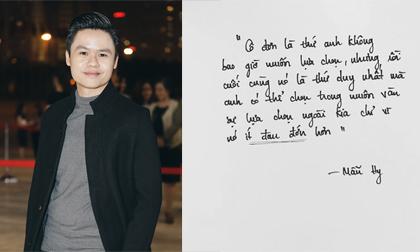 " Cô đơn là thứ anh không
bao giờ muốn lựa chọn, nhưng rồi
cuối cùng nó là thứ duy nhất mà
anh có thể chọn trong muôn vàn
sự lựa chọn ngoài kia chỉ vì
nó ít đau đớn hơn "
— Mẫn Hy